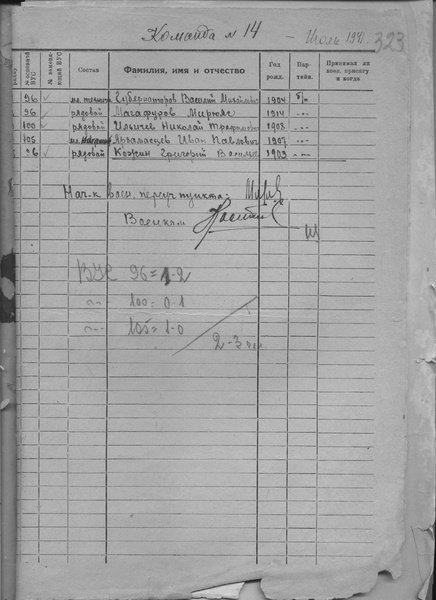 Команда № 14 - Июль 1941. 323
№ основной ВУС № замещающей ВУС Состав Фамилия, имя и отчество Год рожд. Партийн. Принимал ли воен. присягу и когда
96 Губернаторов Василий 1904 б/п
96 рядовой Магафуров Мирзая 1914 -"-
100 рядовой Ильичев Николай Трофимович 1908 -"-
105 Арзамасцев Иван Павлович 1907 -"-
96 рядовой Кожин Григорий Василь 1903 -"-
Нач-к воен. пересч пункта:
Военком
ВУС 96 = 1-2
-"- 100 = 0-1
-"- 105 = 1-0
2-3